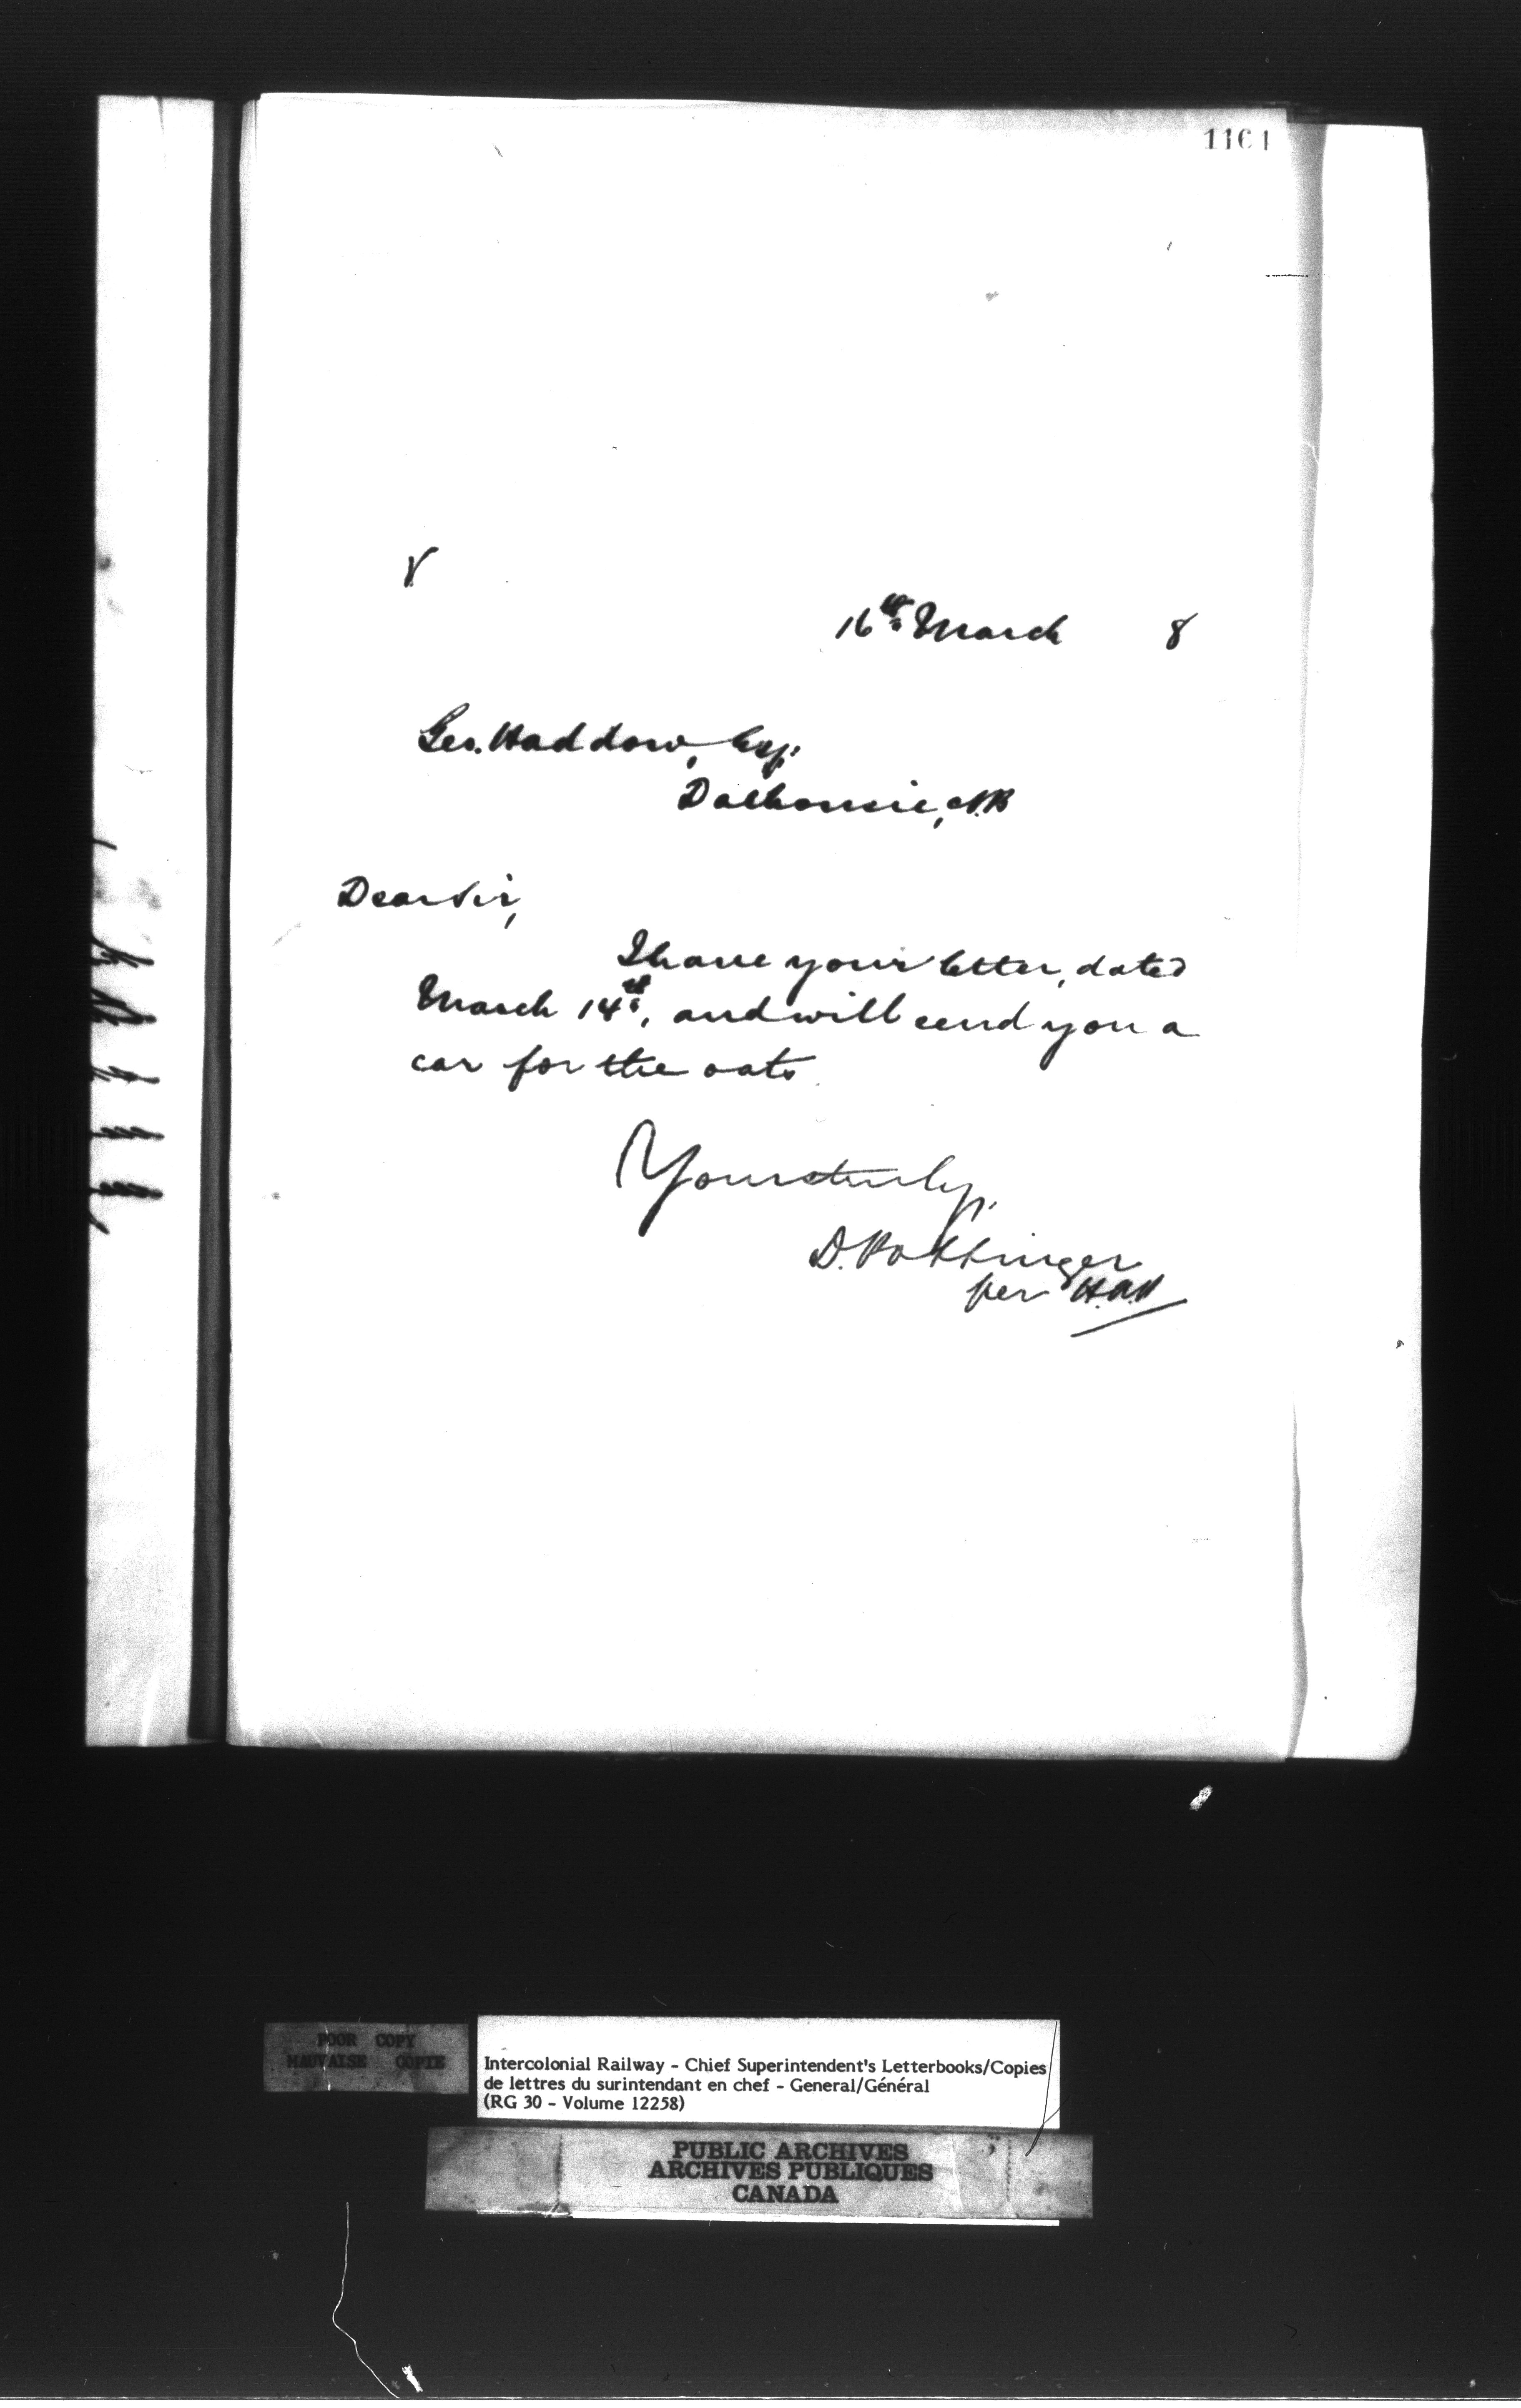 1161
8
16th March 8
Geo. Haddow, Esq.
Dalhousie, N.B
Dear Sir,
I have your letter, dated
March 14th, and will send you a
car for the oats
Yours truly,
D. Pottinger
per
POOR COPY
MAUVAISE COPIE
Intercolonial Railway - Chief Superintendent's Letterbooks/Copies
de lettres du surintendant en chef - General/Général
(RG 30 - Volume 12258)
PUBLIC ARCHIVES
ARCHIVES PUBLIQUES
CANADA